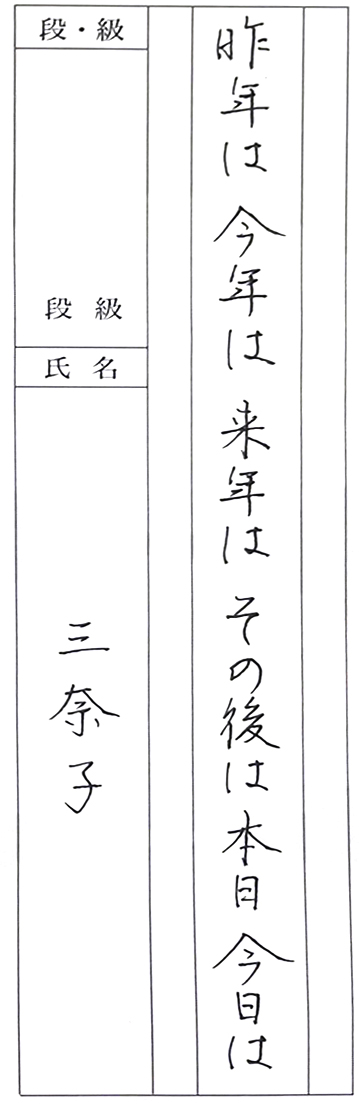 昨年は 今年は 来年は その後は 本日 今日は
段・級
段 級
氏 名
三奈子